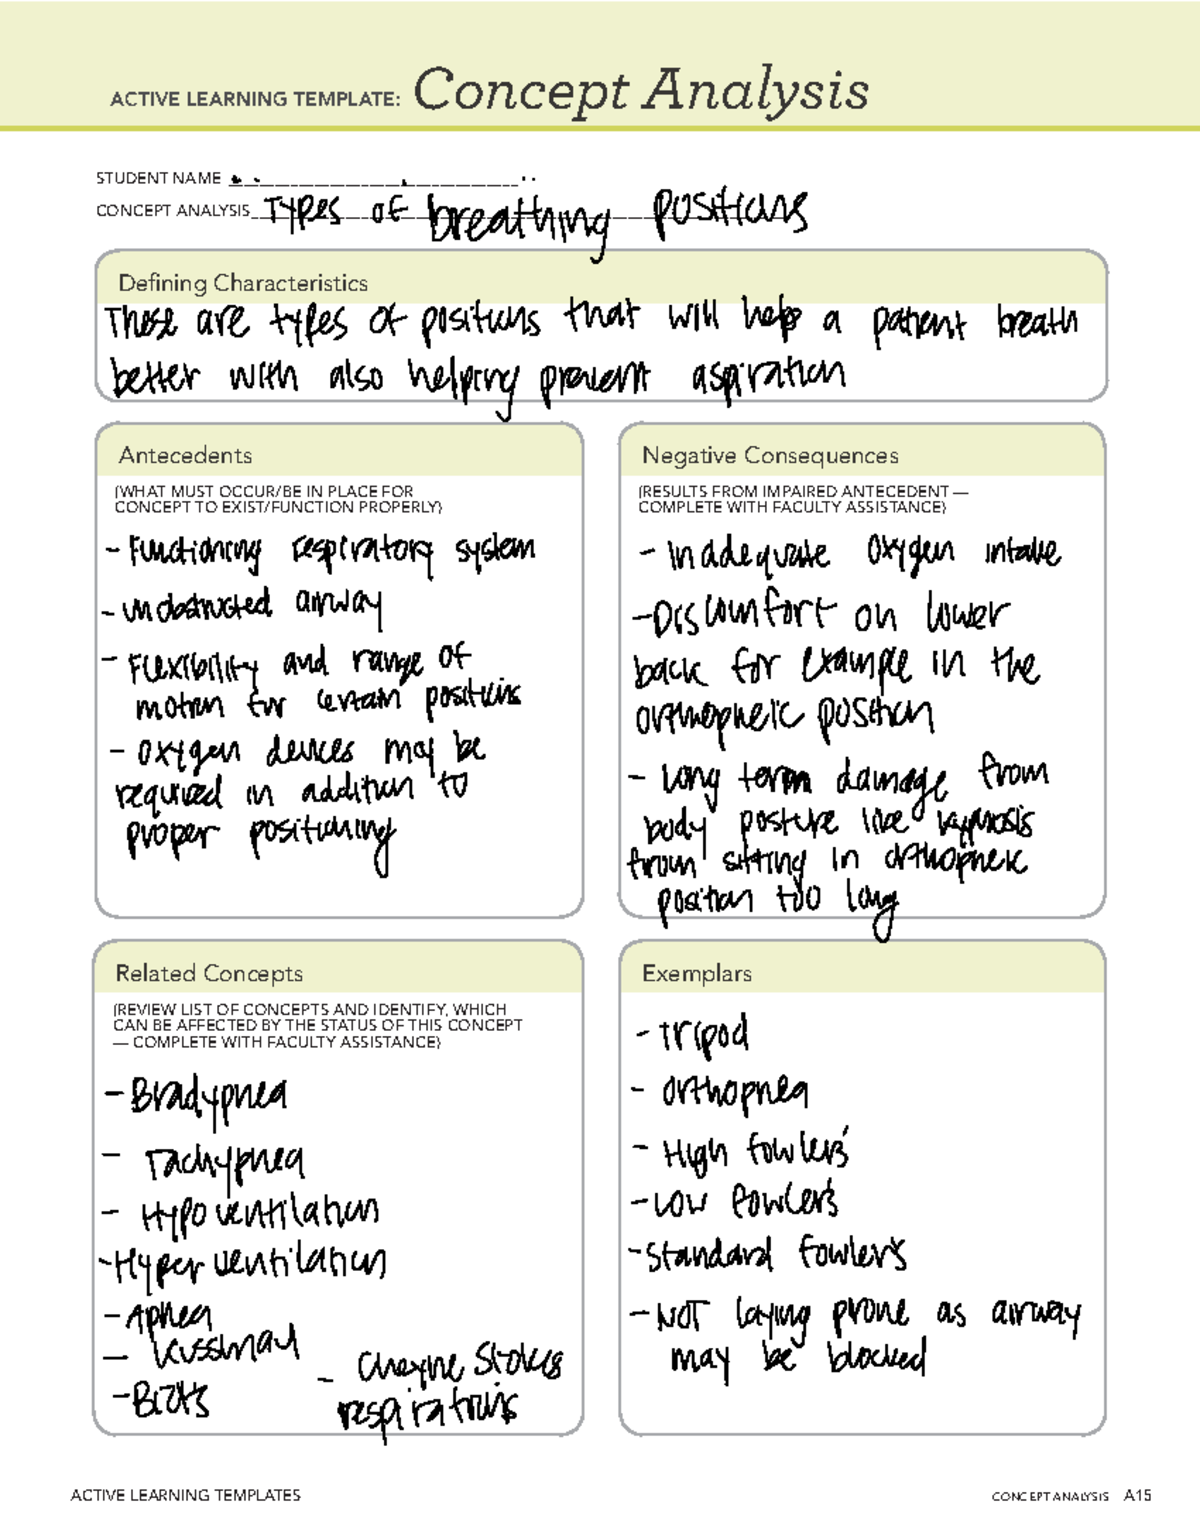 ACTIVE LEARNING TEMPLATE: Concept Analysis
STUDENT NAME
CONCEPT ANALYSIS Types of breathing positions
Defining Characteristics
These are types of positions that will help a patient breath
better with also helping prevent aspiration
Antecedents
(WHAT MUST OCCUR/BE IN PLACE FOR
CONCEPT TO EXIST/FUNCTION PROPERLY)
- Functioning respiratory system
- unobstructed airway
- Flexibility and range of
motion for certain positions
- oxygen devices may be
required in addition to
proper positioning
Negative Consequences
(RESULTS FROM IMPAIRED ANTECEDENT —
COMPLETE WITH FACULTY ASSISTANCE)
- Inadequate oxygen intake
- Discomfort on lower
back for example in the
orthopneic position
- long term damage from
body posture like kyphosis
from sitting in orthopneic
position too long
Related Concepts
(REVIEW LIST OF CONCEPTS AND IDENTIFY, WHICH
CAN BE AFFECTED BY THE STATUS OF THIS CONCEPT
— COMPLETE WITH FACULTY ASSISTANCE)
- Bradypnea
- Tachypnea
- Hypoventilation
- Hyperventilation
- Apnea
- Kussmaul
- Biots
- Cheyne Stokes
respirations
Exemplars
- Tripod
- Orthopnea
- High fowlers'
- Low fowler's
- Standard fowler's
- NOT laying prone as airway
may be blocked
ACTIVE LEARNING TEMPLATES
CONCEPT ANALYSIS A15